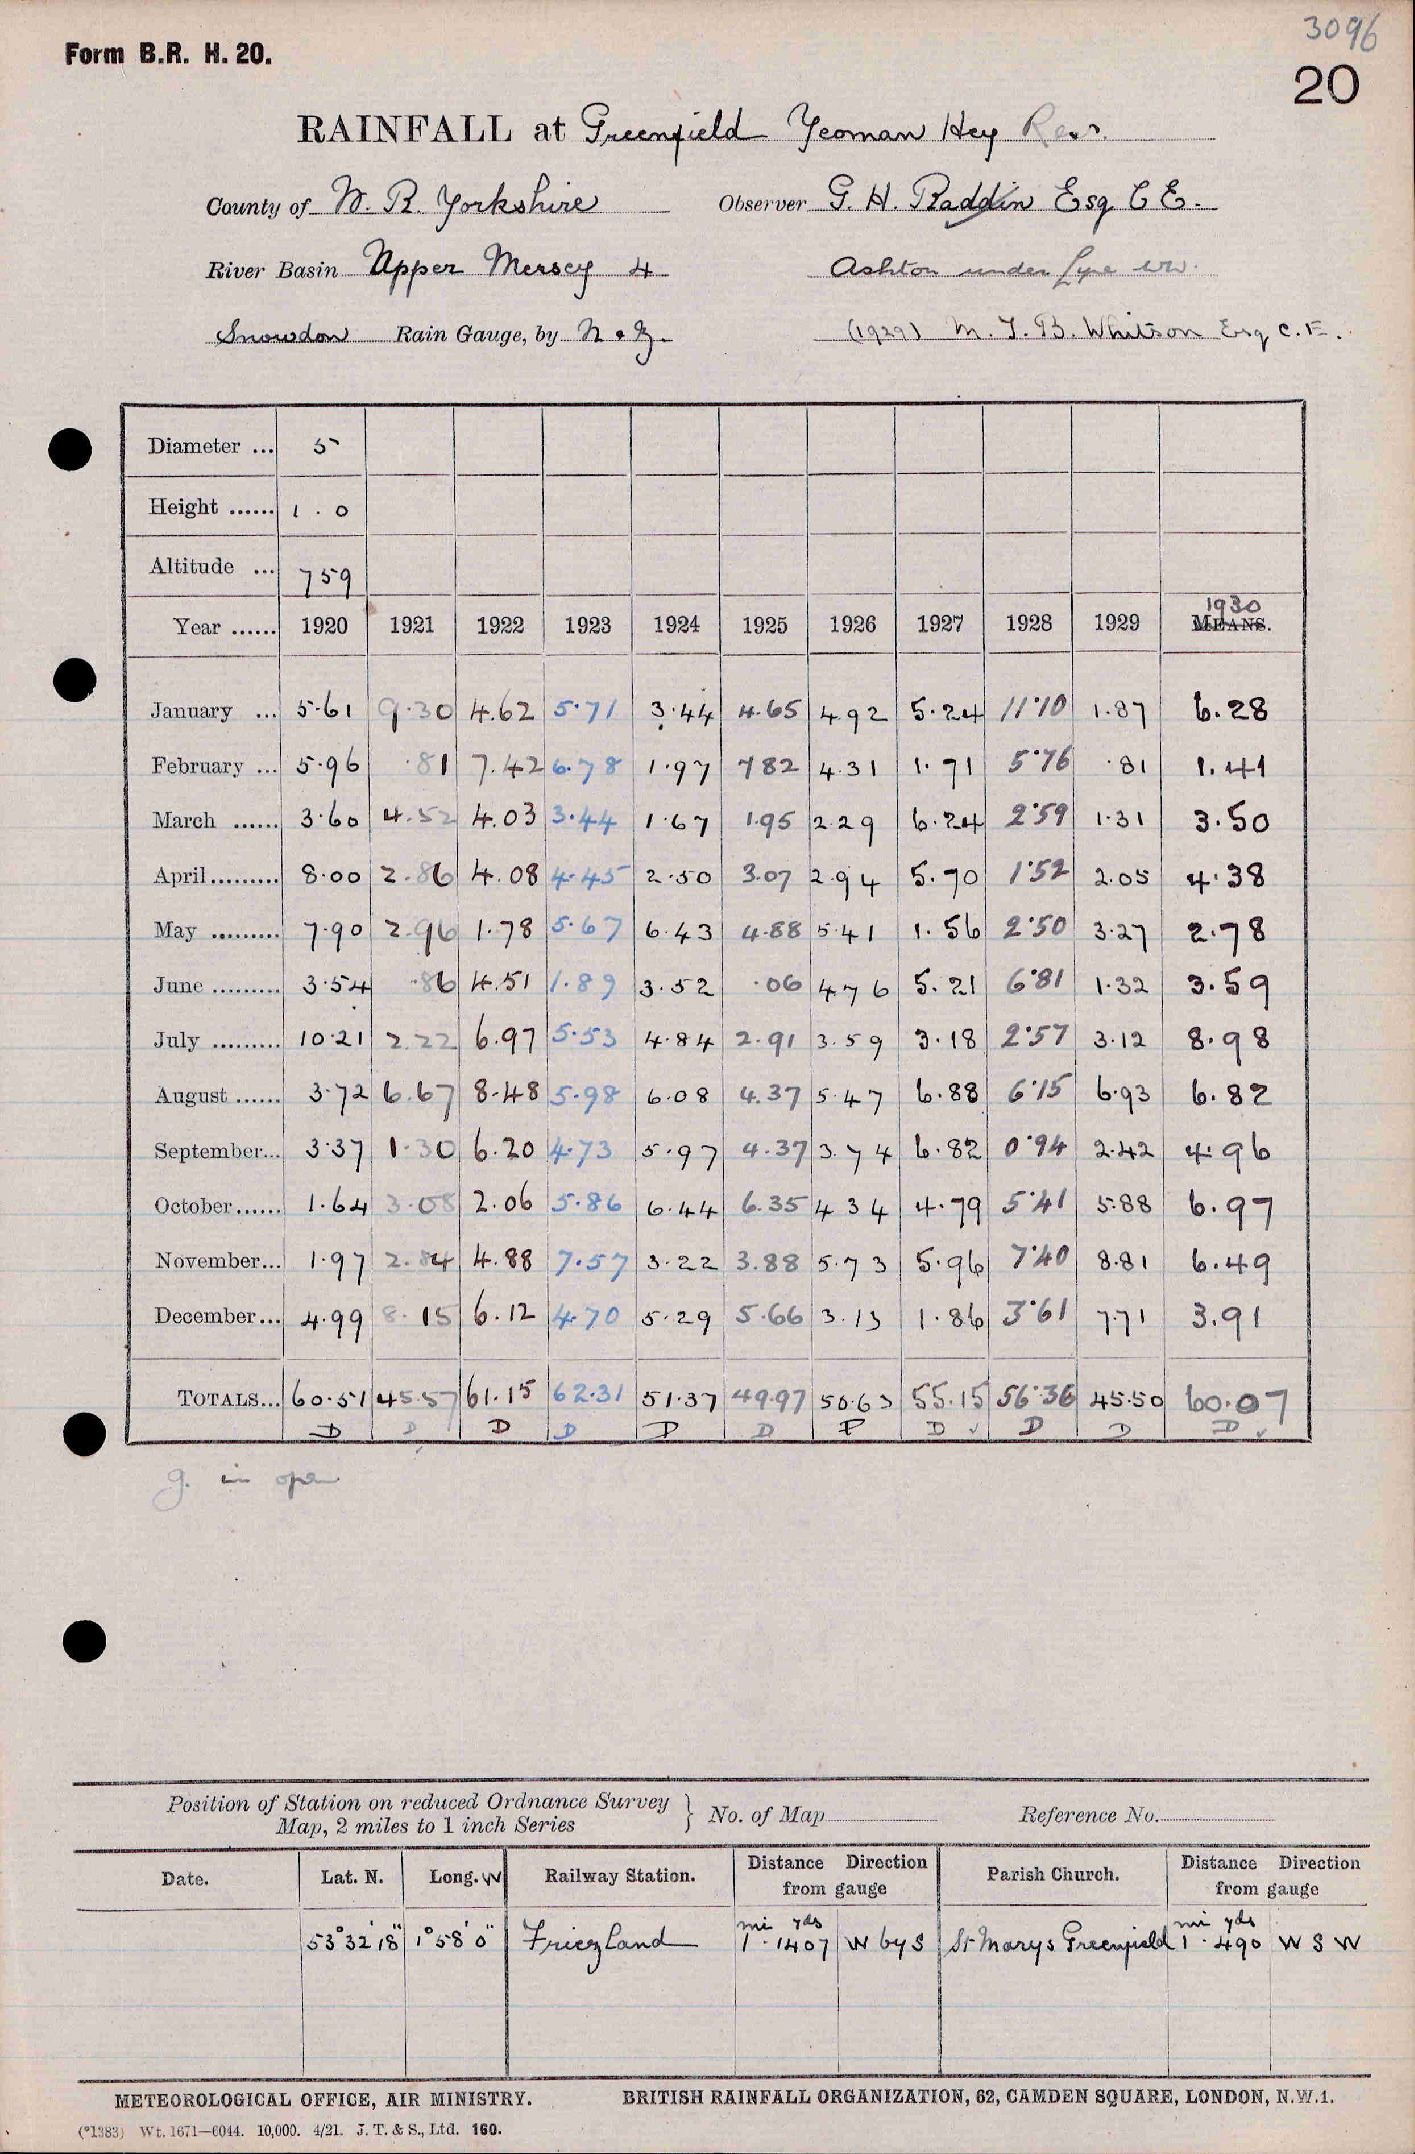 3096
Form B.R. H. 20.
20
RAINFALL at Greenfield Yeoman Hey Resr.
County of W. R. Yorkshire Observer G. H. Raddin Esq C E.
River Basin Upper Mersey 4 Ashton under Lyne WW.
Snowdon Rain Gauge, by N & Z. (1929) M. T. B. Whitson Esq C.E.
Diameter ... 5
Height ...... 1 . 0
Altitude ... 759
Year ...... 1920 1921 1922 1923 1924 1925 1926 1927 1928 1929 1930 MEANS.
January ... 5.61 9.30 4.62 5.71 3.44 4.65 4.92 5.24 11.10 1.87 6.28
February ... 5.96 .81 7.42 6.78 1.97 7 82 4.31 1.71 5.76 .81 1.41
March ...... 3.60 4.52 4.03 3.44 1.67 1.95 2.29 6.24 2.59 1.31 3.50
April......... 8.00 2.86 4.08 4.45 2.50 3.07 2.94 5.70 1.52 2.05 4.38
May ......... 7.90 2.96 1.78 5.67 6.43 4.88 5.41 1.56 2.50 3.27 2.78
June ......... 3.54 .86 4.51 1.89 3.52 .06 4 7 6 5.21 6.81 1.32 3.59
July ......... 10.21 2.22 6.97 5.53 4.84 2.91 3.59 3.18 2.57 3.12 8.98
August ...... 3.72 6.67 8.48 5.98 6.08 4.37 5.47 6.88 6.15 6.93 6.82
September... 3.37 1.30 6.20 4.73 5.97 4.37 3.74 6.82 0.94 2.42 4.96
October...... 1.64 3.08 2.06 5.86 6.44 6.35 4 3 4 4.79 5.41 5.88 6.97
November... 1.97 2.84 4.88 7.57 3.22 3.88 5.73 5.96 7.40 8.81 6.49
December... 4.99 8.15 6.12 4.70 5.29 5.66 3.13 1.86 3.61 7.71 3.91
TOTALS... 60.51 45.57 61.15 62.31 51.37 49.97 50.63 55.15 56.36 45.50 60.07
D D D D D D D D ✓ D D D ✓
g. in open
Position of Station on reduced Ordnance Survey } No. of Map Reference No.
Map, 2 miles to 1 inch Series
Date. Lat. N. Long. W Railway Station. Distance Direction from gauge Parish Church. Distance Direction from gauge
mi yds mi yds
53°32'18" 1°58'0" Friezland 1 . 1407 W by S St Marys Greenfield 1 . 490 W S W
METEOROLOGICAL OFFICE, AIR MINISTRY. BRITISH RAINFALL ORGANIZATION, 62, CAMDEN SQUARE, LONDON, N.W.1.
(*1383) Wt. 1671—6044. 10,000. 4/21. J. T. & S., Ltd. 160.